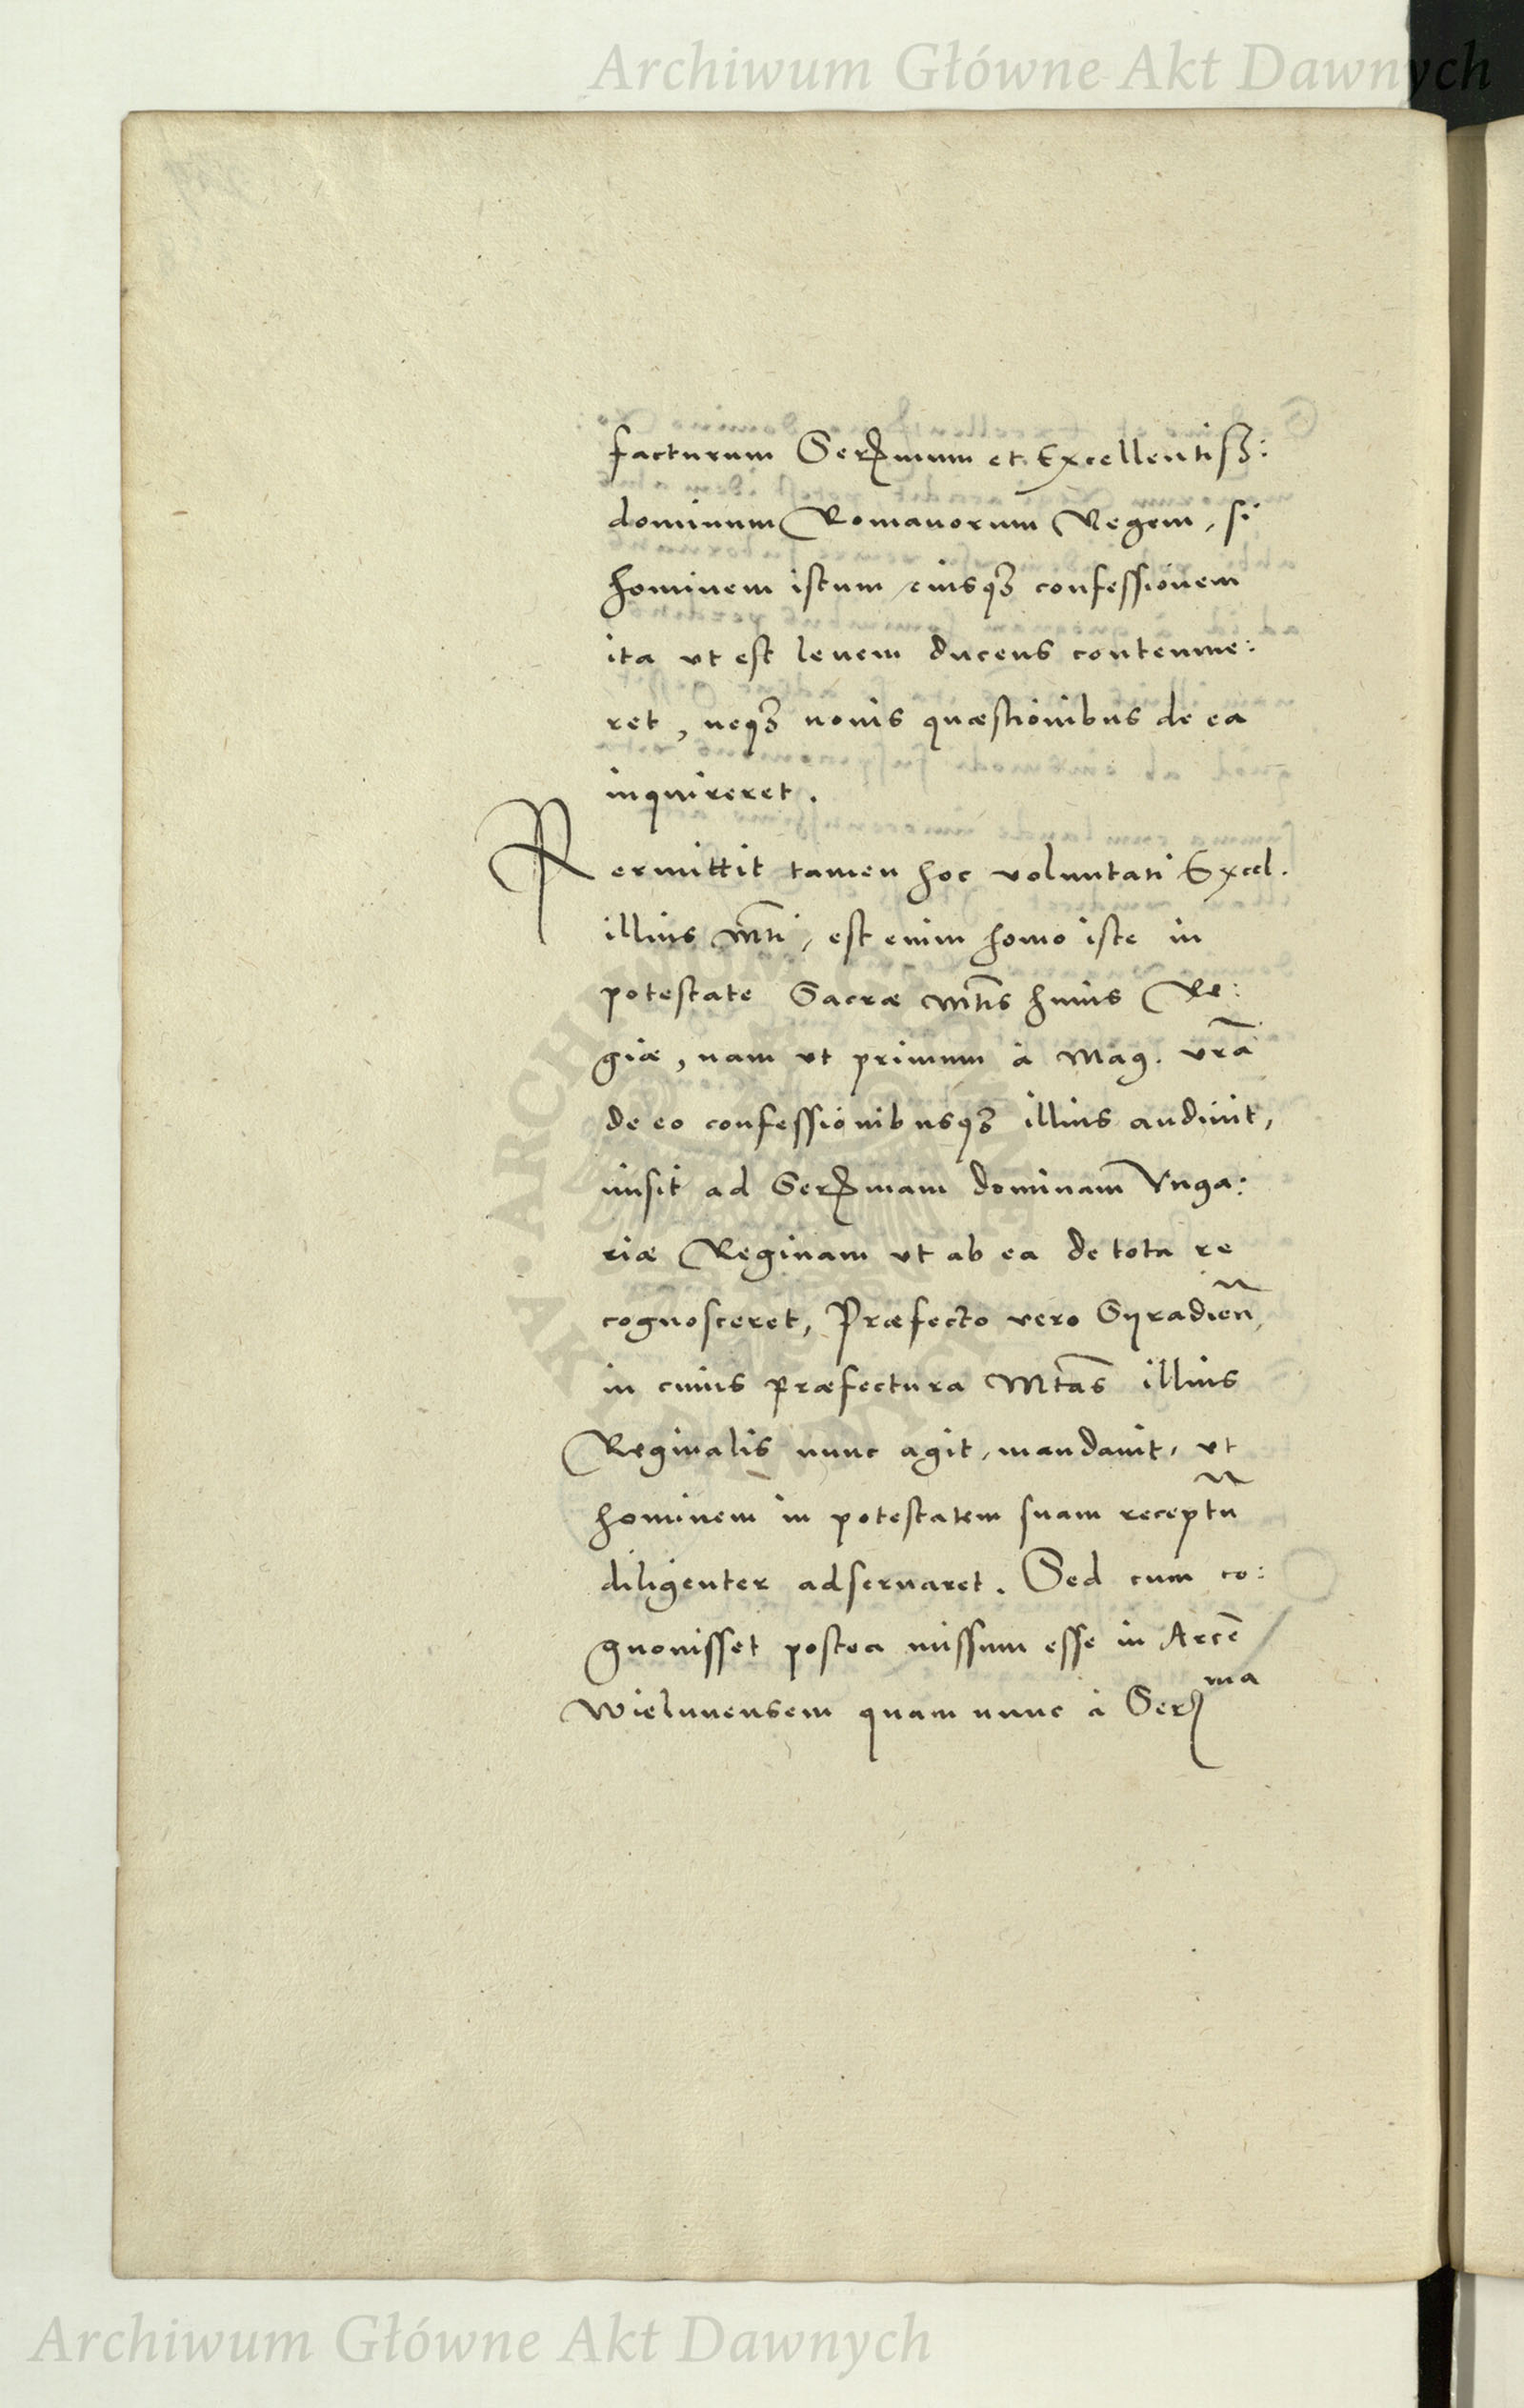 Archiwum Główne Akt Dawnych
facturum Serᷤmum et Excellentiſs:
dominum Romanorum Regem, si
hominem istum eiusqꝫ confessionem
ita ut est leuem ducens contemne:
ret, neqꝫ nouis quæstionibus de ea
inquireret.
Permittit tamen hoc voluntati Excel.
illius Mti, est enim homo iste in
potestate Sacræ Mtis huius Re:
giæ, nam ut primum à Mag. vrã
de eo confessionibusqꝫ illius audiuit,
misit ad Sermam dominam Vnga:
riæ Reginam ut ab ea de tota re
cognosceret, Præfecto vero Syradien̄,
in cuius præfectura Mtas illius
Reginalis nunc agit, mandauit, ut
hominem in potestatem suam receptū
diligenter adseruaret. Sed cum co:
gnouisset postea missum esse in Arcē
Wielunensem quam nunc à Serma
ARCHIWUM GŁÓWNE AKT DAWNYCH
Archiwum Główne Akt Dawnych